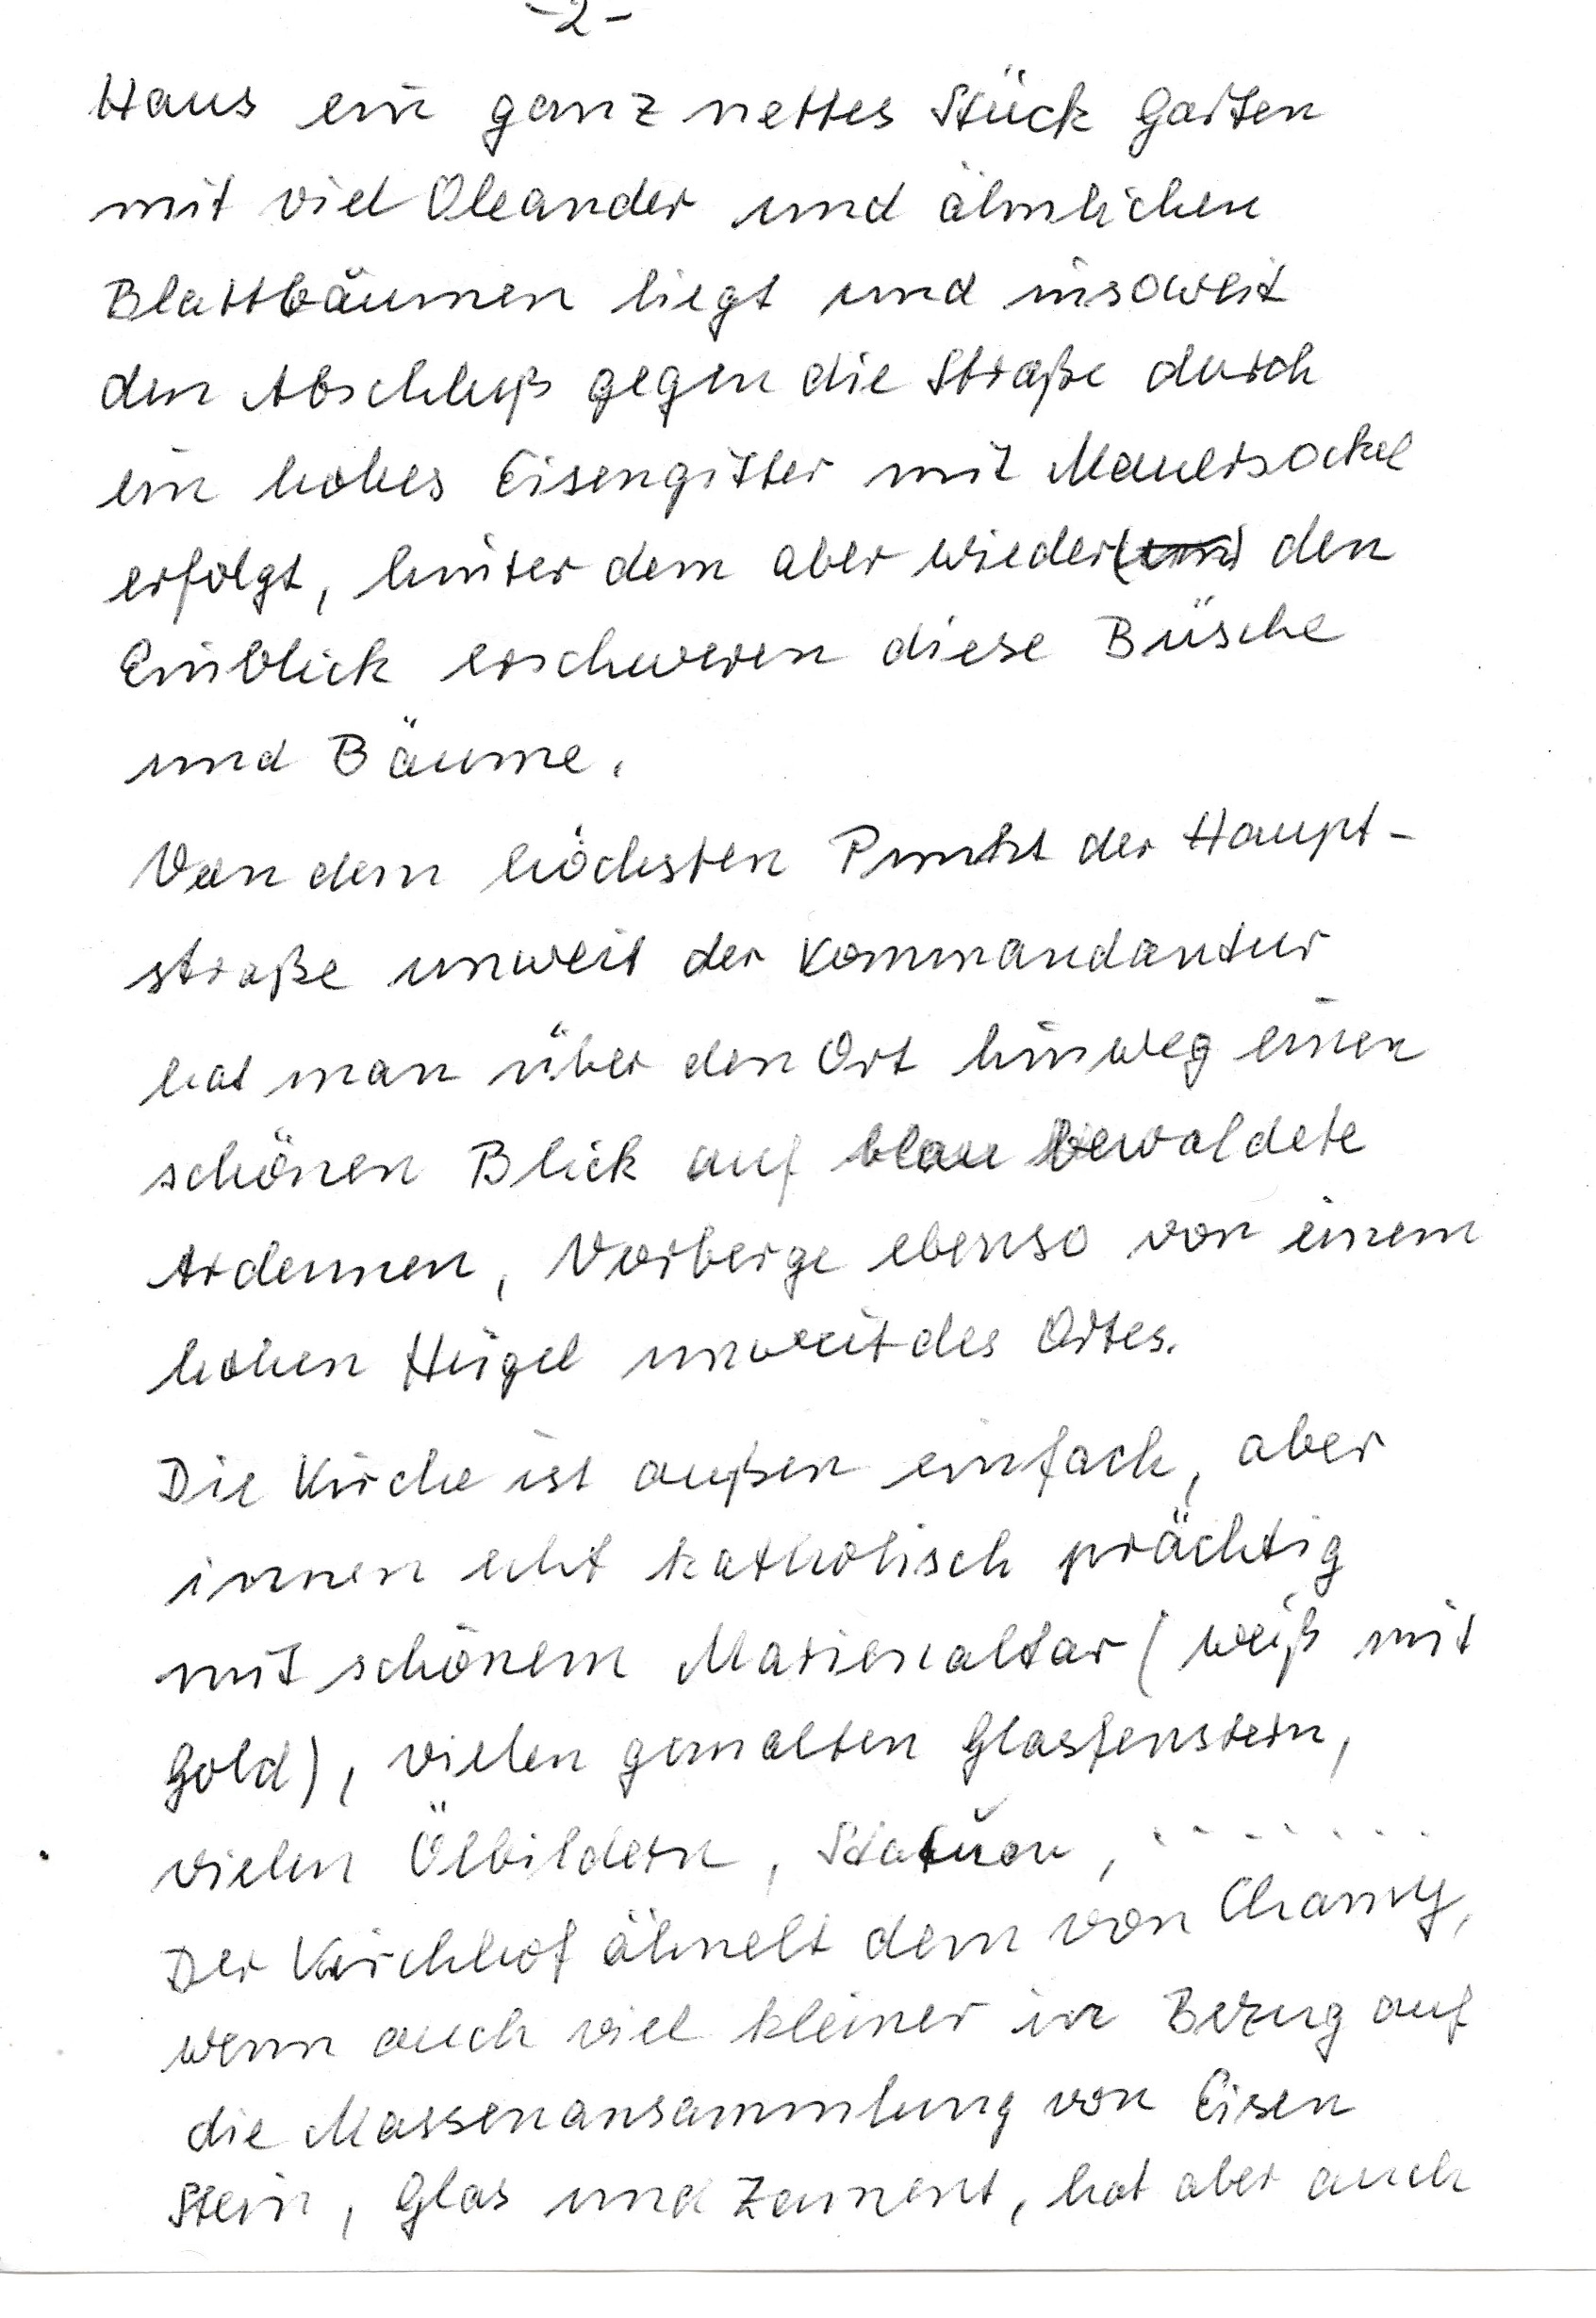 -2-
Haus ein ganz nettes Stück Garten
mit viel Oleander und ähnlichen
Blattbäumen liegt und insoweit
den Abschluß gegen die Straße durch
ein hohes Eisengitter mit Mauersockel
erfolgt, hinter dem aber wieder(um) den
Einblick erschweren diese Büsche
und Bäume.
Von dem höchsten Punkt der Haupt-
straße unweit der Kommandantur
hat man über den Ort hinweg einen
schönen Blick auf blau bewaldete
Ardennen, Vorberge ebenso von einem
hohen Hügel unweit des Ortes.
Die Kirche ist außen einfach, aber
innen echt katholisch prächtig
mit schönem Marienaltar (weiß mit
Gold), vielen gemalten Glasfenstern,
vielen Ölbildern, Statuen, .......
Der Kirchhof ähnelt dem von Charny,
wenn auch viel kleiner in Bezug auf
die Massenansammlung von Eisen
Stein, Glas und Zement, hat aber auch